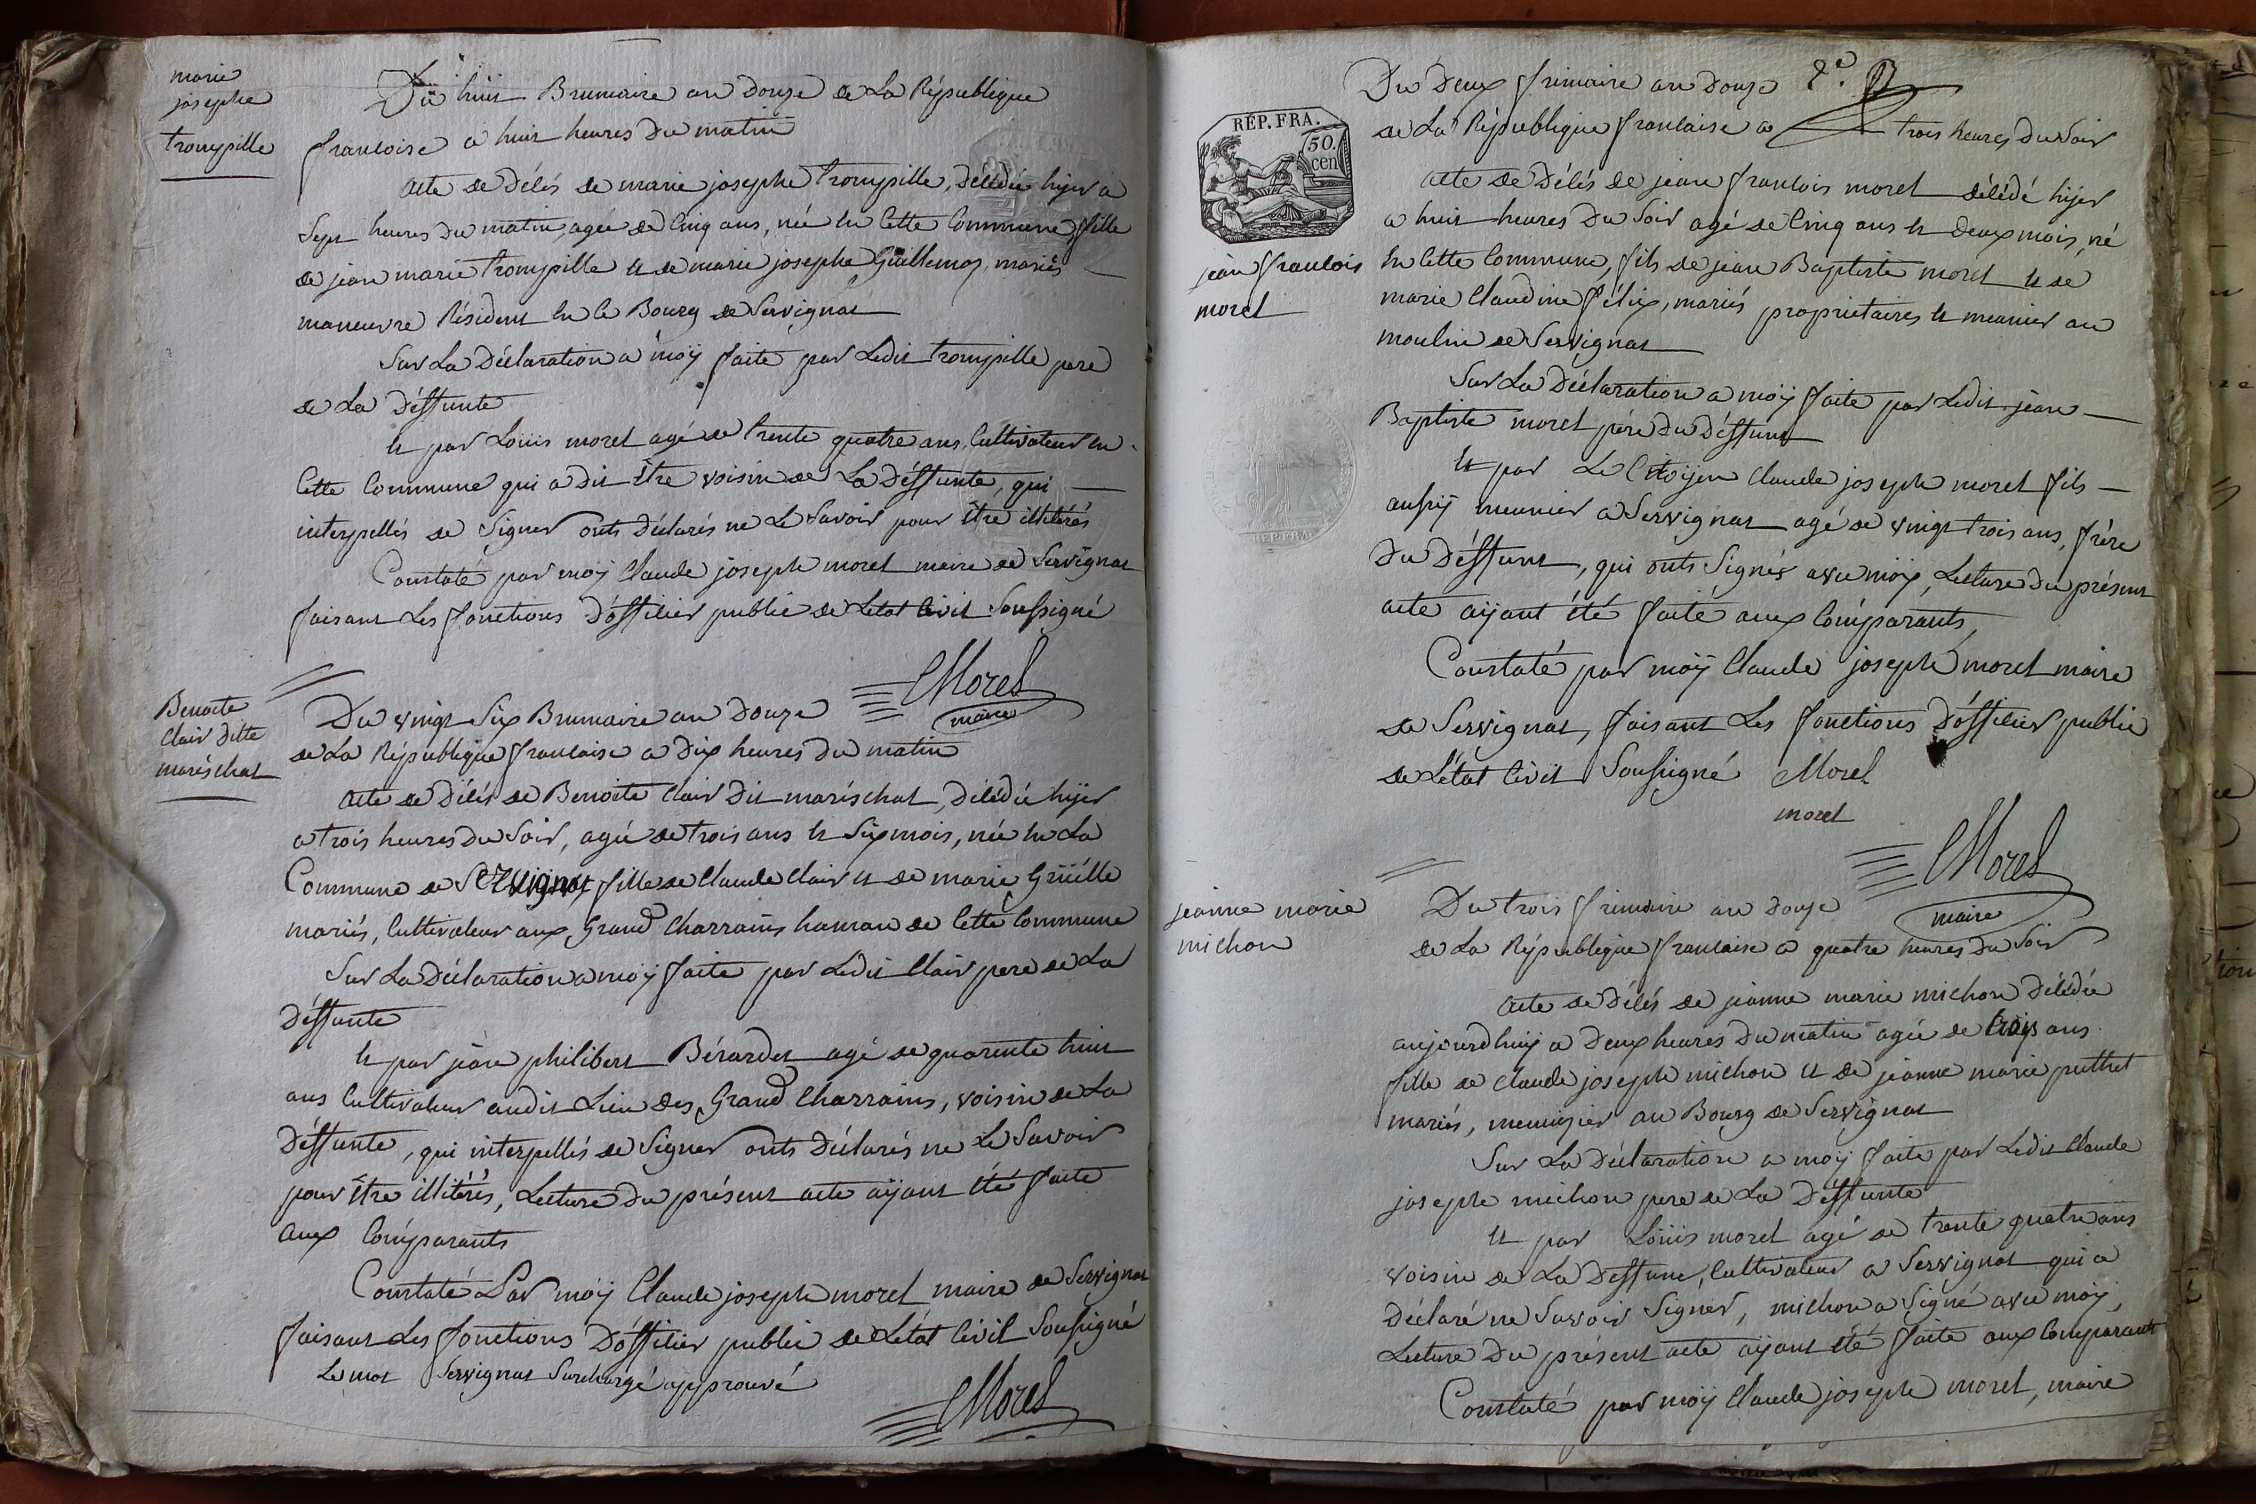 marie
josephe
trompille
Du huit Brumaire an Douze de La République
francoise a huit heures du matin
acte de Décés de marie josephe trompille, Décédée hijer a
Sept heures du matin, agée de Cinq ans, née en Cette Commune, fille
de jean marie trompille et de marie josephe Guillemoz, mariés
manœuvre Résident en Ce Bourg de Servignat
Sur La Déclaration a moÿ faite par Ledit trompille pere
de La Déffunte
et par Loüis morel agé de trente quatre ans, Cultivateur en
Cette Commune qui a dit être voisin de La Déffunte, qui
interpellés de Signer onts Déclarés ne Le Savoir pour être illitérés
Constaté par moÿ Claude joseph morel maire de Servignat
faisant Les fonctions D'officier public de Létat Civil Soussigné
CMorel
maire
Benoite
Clair ditte
maréschat
Du vingt Six Brumaire an Douze
de La République francaise a Dix heures du matin
acte de Décés de Benoite Clair Dit maréschat, Décédée hijer
a trois heures du Soir, agée de trois ans et Six mois, née en La
Commune de Servignat, fille de Claude Clair et de marie Grüille
mariés, Cultivateur aux Grand Charrains hamau de Cette Commune
Sur La Déclaration a moÿ faite par Ledit Clair pere de La
Déffunte
et par jean philibert Bérardet agé de quarente huit
ans Cultivateur audit Lieu des Grand Charrains, voisin de La
Déffunte, qui interpellés de Signer onts Déclarés ne Le Savoir
pour être illitérés, Lecture du présent acte aÿant été faite
aux Comparants
Constaté Par moÿ Claude joseph morel maire de Servignat
faisant Les fonctions D'officier public de Létat Civil Soussigné
Le mot Servignat Surchargé approuvé
CMorel
RÉP. FRA.
50.
cen
Du Deux frimaire an Douze
de La République francaise a trois heures du Soir
jean francois
morel
acte de Décés de jean francois morel décédé hijer
a huit heures du Soir agé de Cinq ans et Deux mois, né
en Cette Commune, fils de jean Baptiste morel et de
marie Claudine félix, mariés propriétaires et meunier au
moulin de Servignat
Sur La Déclaration a moÿ faite par Ledit jean
Baptiste morel pére du Déffunt
et par Le Citoÿen Claude joseph morel fils
aussÿ meunier a Servignat agé de vingt trois ans, frére
du Déffunt, qui onts Signés avec moÿ, Lecture du présent
acte aÿant été faite aux Comparants,
Constaté par moÿ Claude joseph morel maire
de Servignat, faisant Les fonctions D'officier public
de Létat Civil Soussigné Morel
morel
CMorel
maire
jeanne marie
michon
Du trois frimaire an Douze
de La République francaise a quatre heures du Soir
acte de Décés de jeanne marie michon Décédée
aujourdhuÿ a Deux heures du matin agée de trois ans
fille de Claude joseph michon et de jeanne marie puthet
mariés, menuisier au Bourg de Servignat
Sur La Déclaration a moÿ faite par Ledit Claude
joseph michon pere de La Déffunte
et par Loüis morel agé de trente quatre ans
voisin de La Deffune, Cultivateur a Servignat qui a
Déclaré ne Savoir Signer, michon a Signé avec moÿ,
Lecture du présent acte aÿant été faite aux Comparants
Constaté par moÿ Claude joseph morel, maire